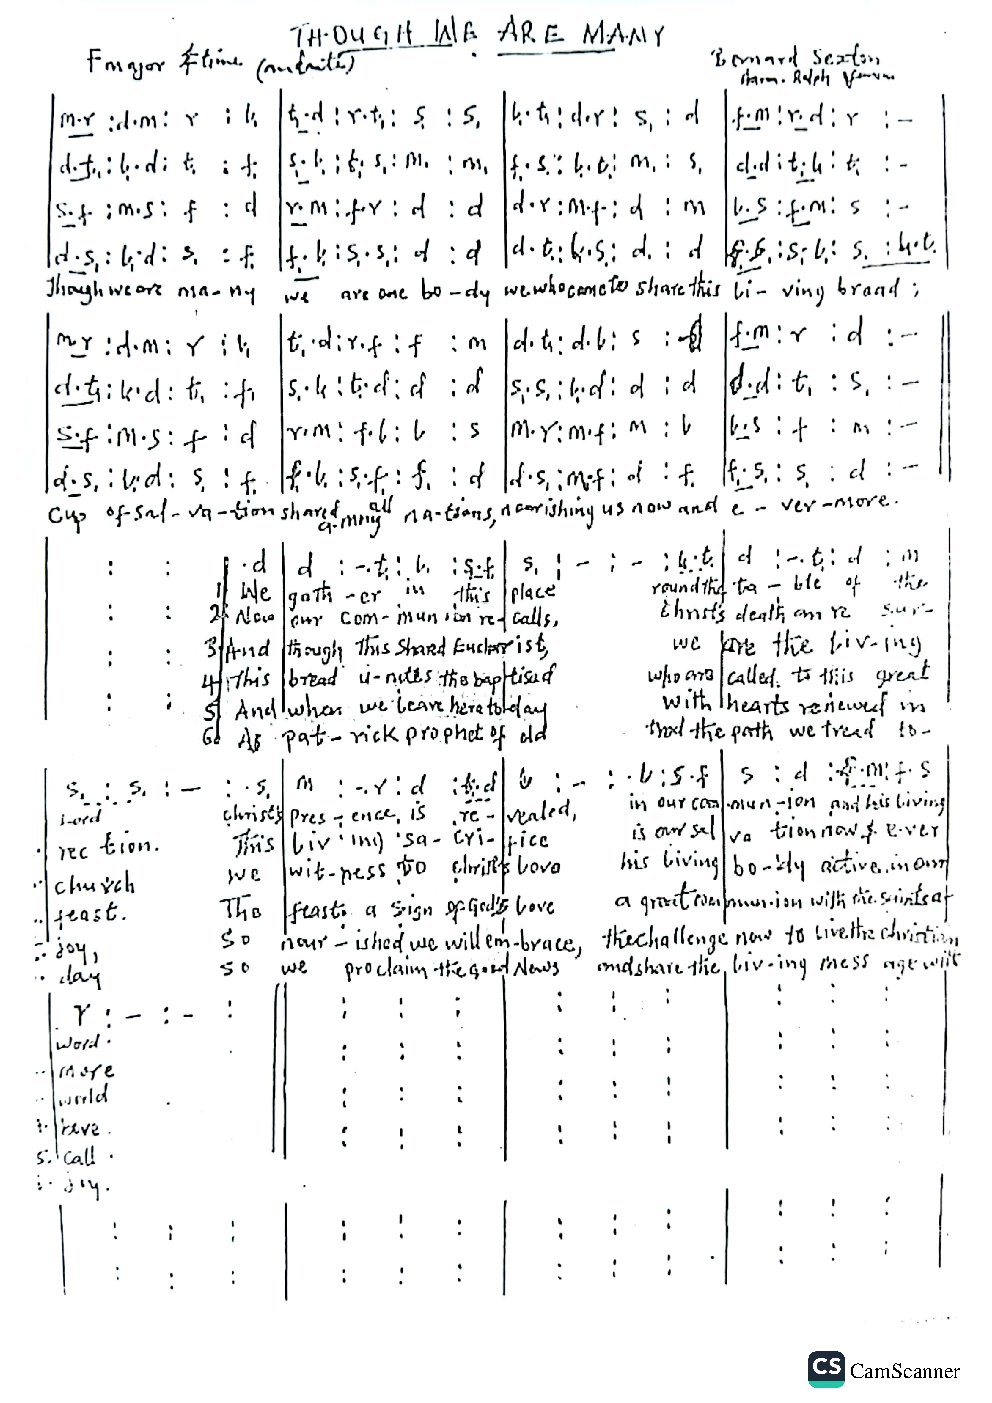 THOUGH WE ARE MANY
F major 4 time (andante)
Bernard Sexton
Harm. Ralph
m.r :d.m: r : l, | t,.d : r.t,: s, : s, | l,.t, : d.r : s, : d | f.m : r.d : r : -
d.t, : l,.d : t, : f, | s,.l, : t,.s, : m, : m, | f,.s, : l,.t, : m, : s, | d.d : t,.l, : t, : -
s.f : m.s : f : d | r.m : f.r : d : d | d.r : m.f : d : m | l.s : f.m : s : -
d.s, : l,.d : s, : f, | f,.l, : s,.s, : d : d | d.t, : l,.s, : d, : d | f,.s, : s,.l, : s, : l,.t,
Though we are ma-ny we are one bo-dy we who come to share this li-ving bread;
m.r : d.m : r : l, | t,.d : r.f : f : m | d.t, : d.l, : s : | f.m : r : d : -
d.t, : l,.d : t, : f, | s,.l, : t,.d : d : d | s,.s, : l,.d : d : d | d.d : t, : s, : -
s.f : m.s : f : d | r.m : f.l : l : s | m.r : m.f : m : l | l.s : f : m : -
d.s, : l,.d : s, : f, | f,.l, : s,.f, : f, : d | d.s, : m.f : d : f, | f,.s, : s, : d : -
Cup of sal-va-tion shared a-mong all na-tions, nourishing us now and e-ver-more.
: : .d | d : -.t, : l, : s,.f, | s, : - : - : l,.t, | d : -.t, : d : m
1 We gath-er in this place round the ta-ble of the
2 Now our com-munion re-calls, Christ's death and re sur-
3 And though this shared Eucharist, we are the liv-ing
4 This bread u-nites the baptised who are called to this great
5 And when we leave here today with hearts renewed in
6 As pat-rick prophet of old trod the path we tread to-
s, : s, : - : .s, | m : -.r : d : t,.d | l, : - : .l, : s.f | s : d : f.m : f.s
Lord Christ's pres-ence, is re-vealed, in our com mun-ion and his living
rec tion. This liv ing sa-cri-fice is our sal va tion now & ever
church we wit-ness to christ's love his living bo-dy active in our
feast. The feast: a sign of God's love a great communion with the saints af
joy, So nour-ished we will em-brace, the challenge now to live the christian
day so we proclaim the Good News and share the liv-ing mess age with
r : - : - :
word
more
world
bove
5. call
joy.
CS CamScanner